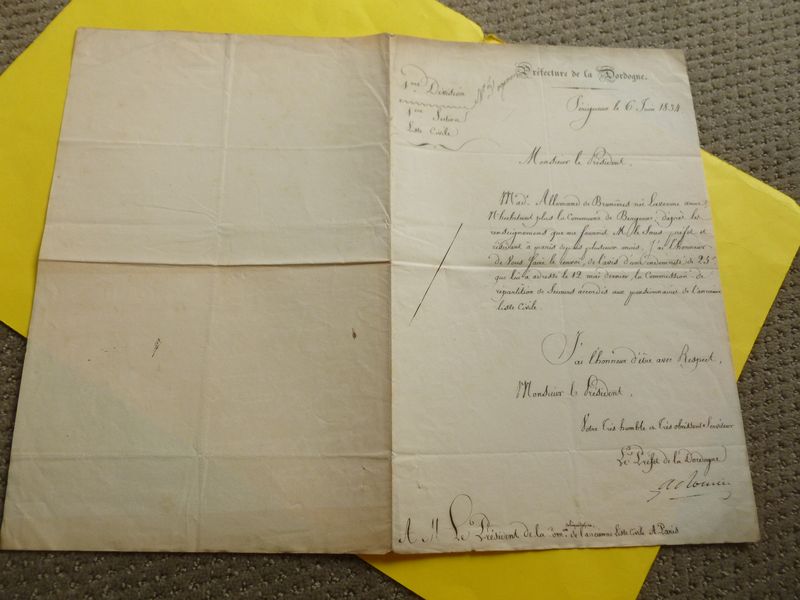 Préfecture de la Dordogne.
1ere Division
1ere Section
Liste Civile
Périgueux le 6 Juin 1834
Monsieur le Président.
Made. Allemand de Brunières née Laverune
N'habitant plus la Commune de Bergerac, d'après les
renseignemens que me fournit M. le Sous préfet et
résidant à paris depuis plusieurs mois, J'ai l'honneur
de Vous faire le renvoi, de l'avis d'une indemnité de 25f
que lui a adressé le 12 mai dernier, la Commission de
repartition de Secours accordés aux pensionnaires de l'ancienne
liste Civile.
J'ai l'honneur d'être avec Respect,
Monsieur le Président.
Votre très humble et très obéissant Serviteur
Le Préfet de la Dordogne
A M. Le Président de la Comon. de l'ancienne liste Civile A Paris